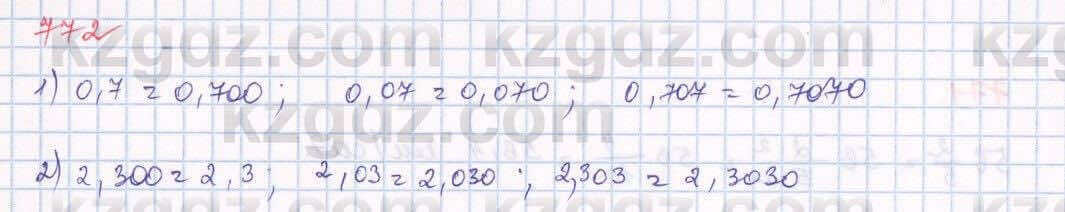 772
1) 0,7 = 0,700 ; 0,07 = 0,070 ; 0,707 = 0,7070
2) 2,300 = 2,3 ; 2,03 = 2,030 ; 2,303 = 2,3030
kzgdz.com kzgdz.com kz
kzgdz.com